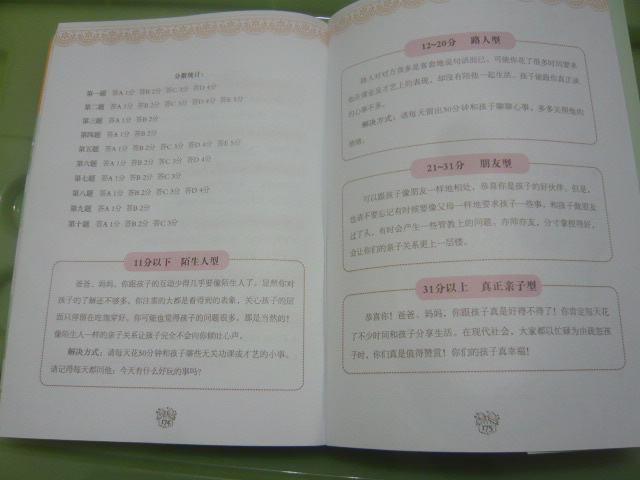 分数统计:
第一题 答A 1分 答B 2分 答C 3分 答D 4分
第二题 答A 1分 答B 2分 答C 3分 答D 4分 答E 5分
第三题 答A 1分 答B 2分
第四题 答A 1分 答B 2分
第五题 答A 1分 答B 2分 答C 3分 答D 4分 答E 5分
第六题 答A 1分 答B 2分 答C 3分 答D 4分
第七题 答A 1分 答B 2分 答C 3分
第八题 答A 1分 答B 2分 答C 3分 答D 4分
第九题 答A 1分 答B 2分
第十题 答A 1分 答B 2分 答C 3分
11分以下 陌生人型
爸爸、妈妈，你跟孩子的互动少得几乎要像陌生人了，显然你对
孩子的了解还不够多，你注意的大都是看得到的表象，关心孩子的层
面只停留在吃饱穿好。你可能也觉得孩子的问题很多，那是当然的！
像陌生人一样的亲子关系让孩子完全不会向你倾吐心声。
解决方式：请每天花30分钟和孩子聊些无关功课或才艺的小事，
请记得每天都问他：今天有什么好玩的事吗？
174
12~20分 路人型
路人对对方很多是客套地说句话而已，可能你花了很多时间要求
他在课业及才艺上的表现，却没有陪他一起生活。孩子能跟你真正谈
的心事不多。
解决方式：请每天留出30分钟和孩子聊聊心事，多多关照他的
情绪。
21~31分 朋友型
可以跟孩子像朋友一样地相处，恭喜你是孩子的好伙伴。但是，
也请不要忘记有时候要像父母一样地要求孩子一些事，和孩子做朋友
过了头，有时会产生一些管教上的问题。亦师亦友，分寸拿捏得好，
会让你们的亲子关系更上一层楼。
31分以上 真正亲子型
恭喜你！爸爸、妈妈，你跟孩子真是好得不得了！你肯定每天花
了不少时间和孩子分享生活。在现代社会，大家都以忙碌为由疏忽孩
子时，你们真是值得赞赏！你们的孩子真幸福！
175